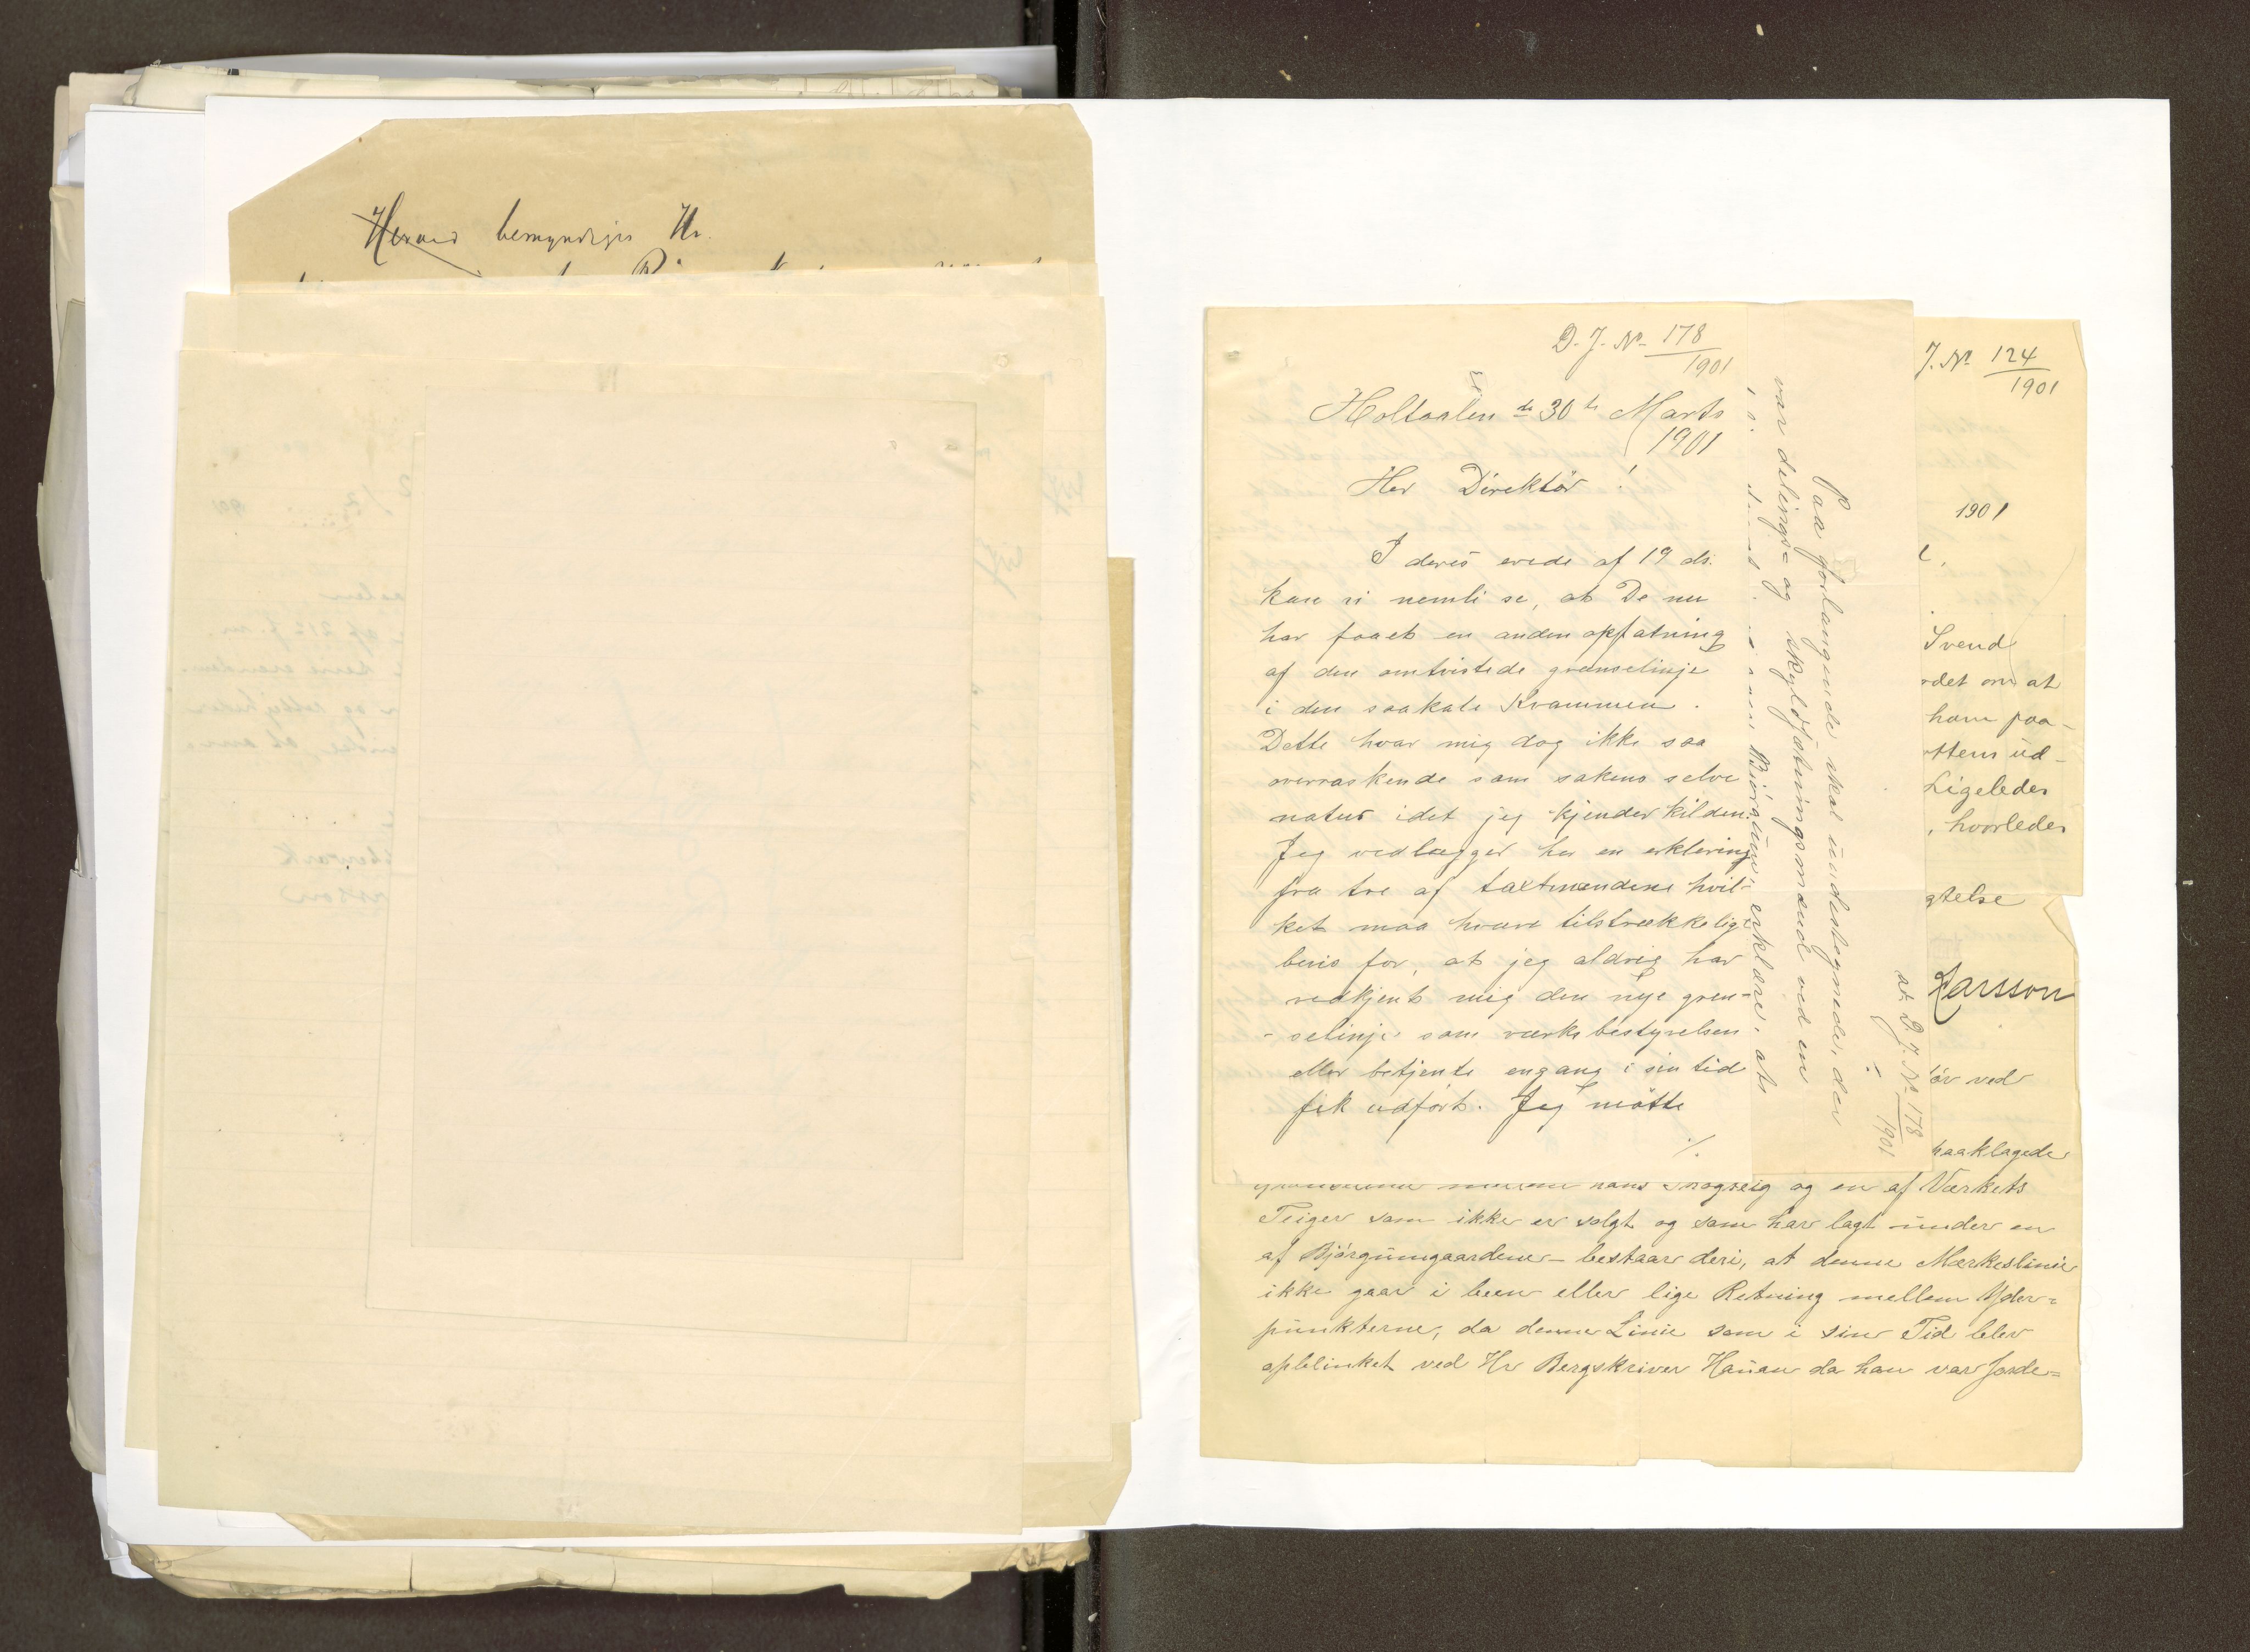 Herved bemyndiges Hr.
D. J. No 178
1901
Holtaalen de 30te Marts
1901
Her Direktör!
I deres erede af 19 ds.
kan vi nemli se, at De nu
har faaet en anden opfatning
af den omtvistede grænselinje
i den saakale Kvammen.
Dette hvar mig dog ikke saa
overraskende som sakens selve
natur idet jeg kjender kilden.
Jeg vedlægger her en erklering
fra tre af taxtmændene hvil-
ket maa hvare tilstrækkelig
bevis for, at jeg aldrig har
vedkjent mig den nye gren-
selinje som værksbestyrelsen
eller betjente engang i sin tid
fik udført. Jeg møtte
./.
Paa forlangende skal undertegnede, der
var delings= og skyldsætningsmænd ved en
Bjørgum, erklære, at
ad. D. J. No 178
1901
J. No 124
1901
1901
Svend
det om at
ham paa-
ttens ud-
Ligeledes
, hvorledes
gtelse
Larsson
ør ved
paaklagede
hans Skogteig og en af Værkets
Teiger som ikke er solgt og som har lagt under en
af Bjørgumgaardene – bestaar deri, at denne Merkeslinie
ikke gaar i been eller lige Retning mellem Yder=
punkterne, da denne Linie som i sin Tid blev
opblinket ved Hr Bergskriver Hauan da han var forde=